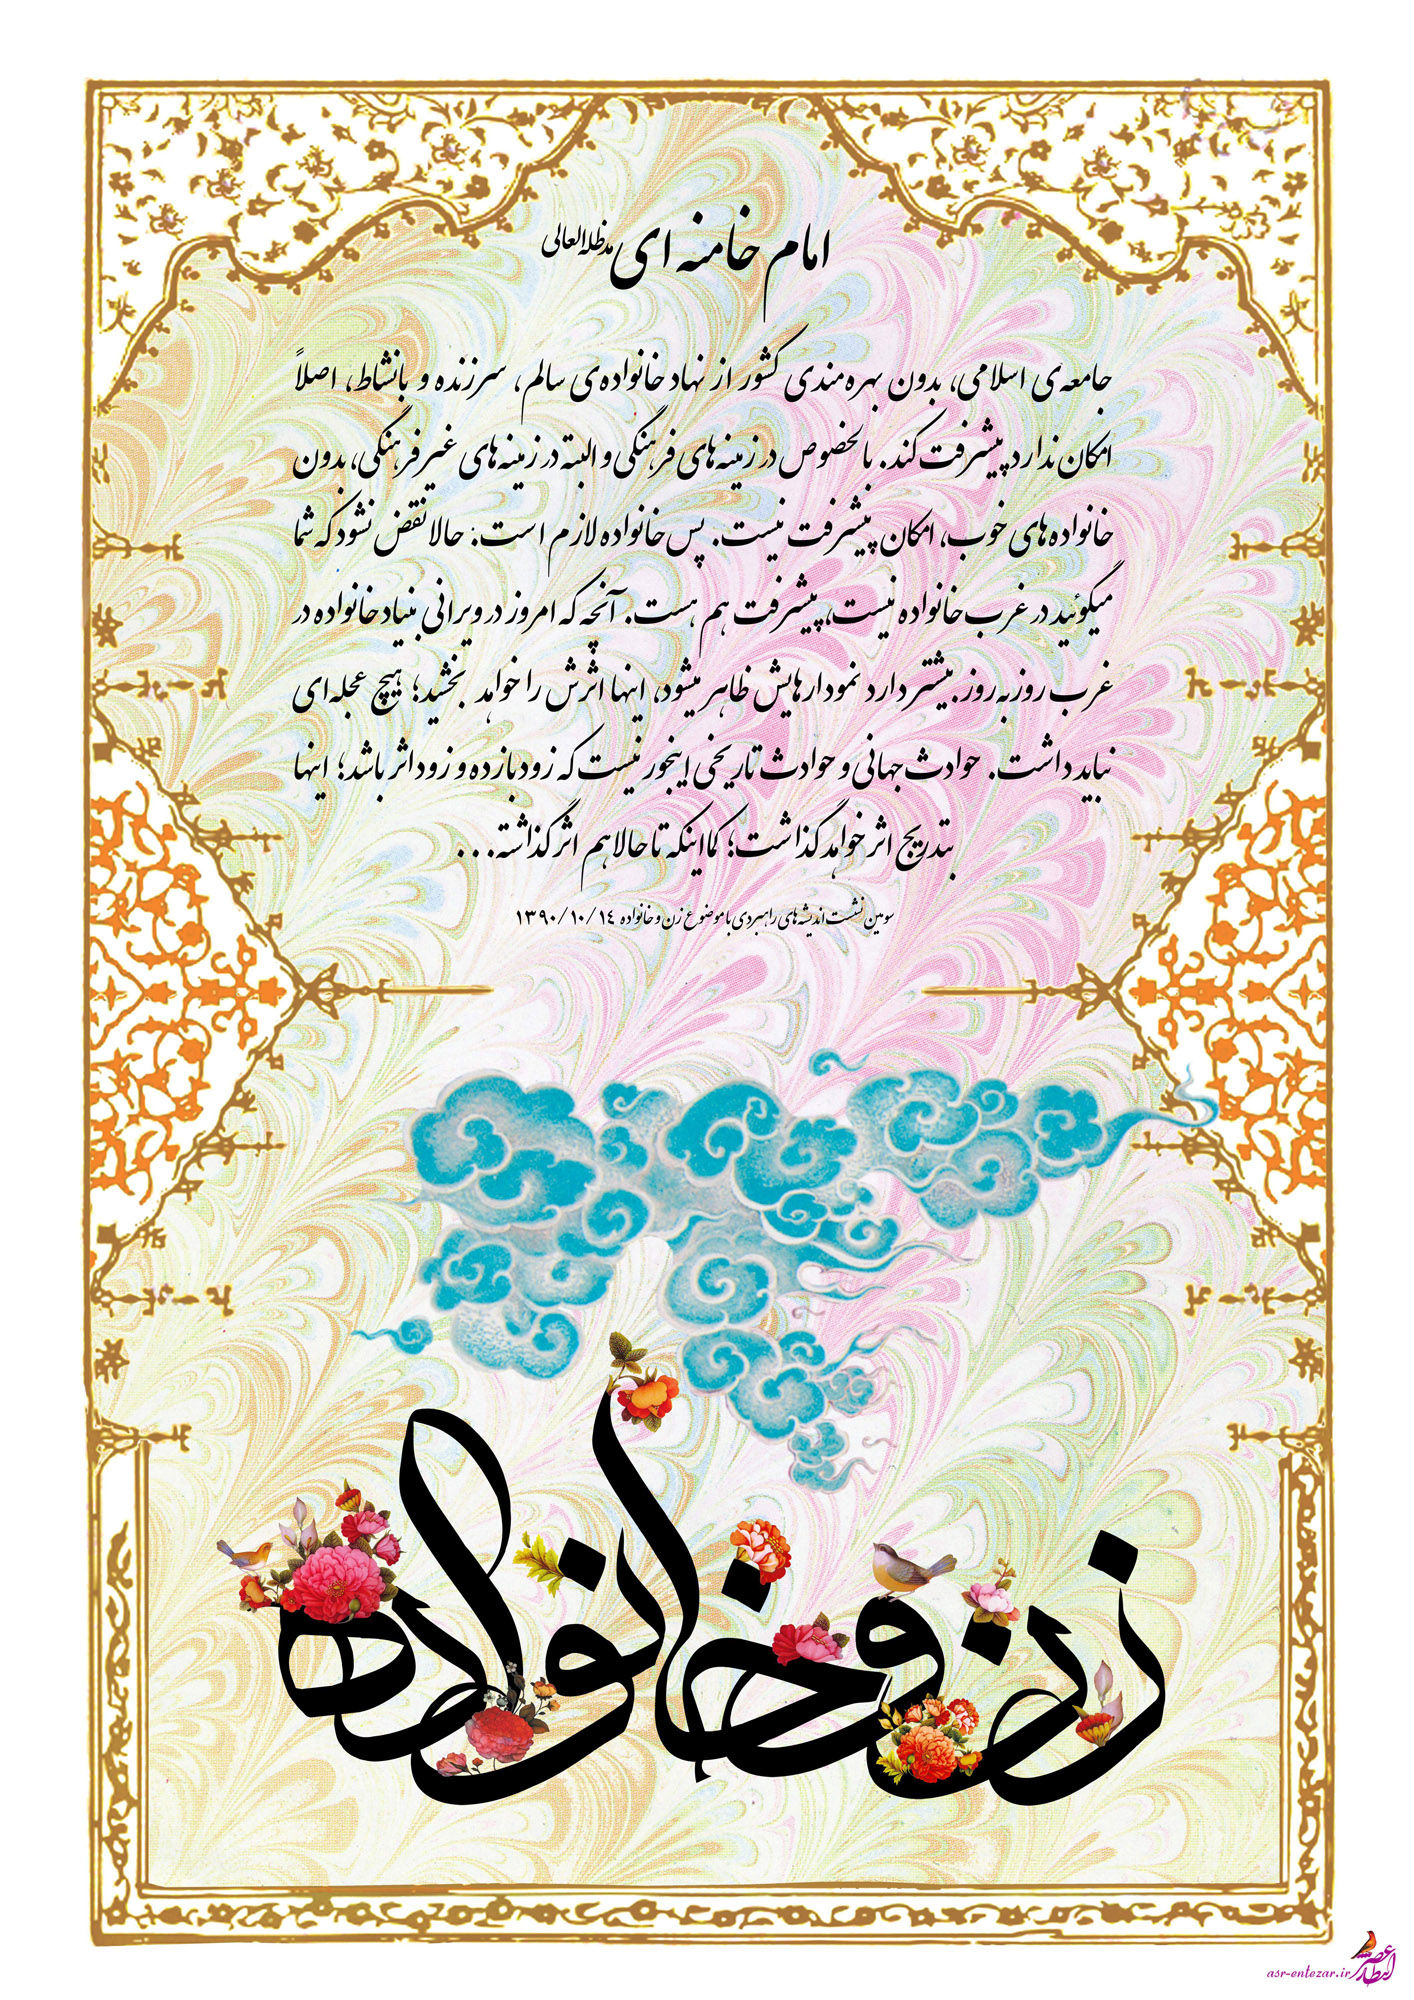 امام خامنه ای مدظله العالی
جامعه‌ی اسلامی، بدون بهره‌مندی کشور از نهاد خانواده‌ی سالم، سرزنده و بانشاط، اصلاً
امکان ندارد پیشرفت کند. بالخصوص در زمینه‌های فرهنگی و البته در زمینه‌های غیرفرهنگی، بدون
خانواده‌های خوب، امکان پیشرفت نیست. پس خانواده لازم است: حالا نقض نشود که شما
میگوئید در غرب خانواده نیست، پیشرفت هم هست. آنچه که امروز در ویرانی بنیاد خانواده در
غرب روزبه‌روز بیشتر دارد نمودارهایش ظاهر میشود، اینها اثرش را خواهد بخشید؛ هیچ عجله‌ای
نباید داشت. حوادث جهانی و حوادث تاریخی اینجور نیست که زود بازده و زود اثر باشد؛ اینها
بتدریج اثر خواهد گذاشت؛ کمااینکه تا حالا هم اثر گذاشته...
سومین نشست اندیشه‌های راهبردی با موضوع زن و خانواده ۱۳۹۰/۱۰/۱٤
زن و خانواده
عصر انتظار
asr-entezar.ir